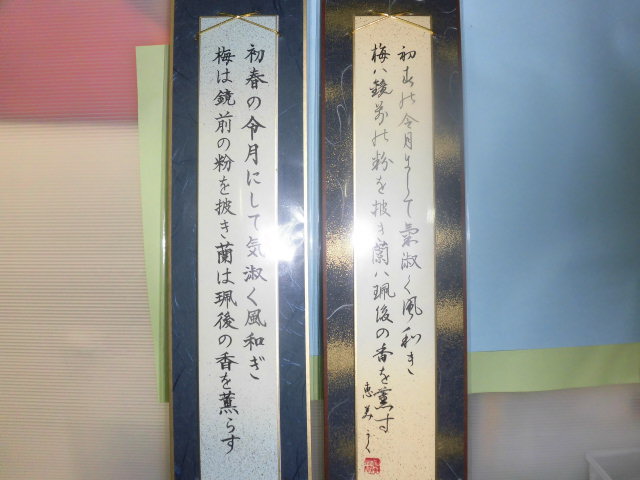 初春の令月にして気淑く風和ぎ
梅は鏡前の粉を披き蘭は珮後の香を薫らす
初春の令月にして氣淑く風和き
梅ハ鏡前の粉を披き蘭ハ珮後の香を薫す
恵美